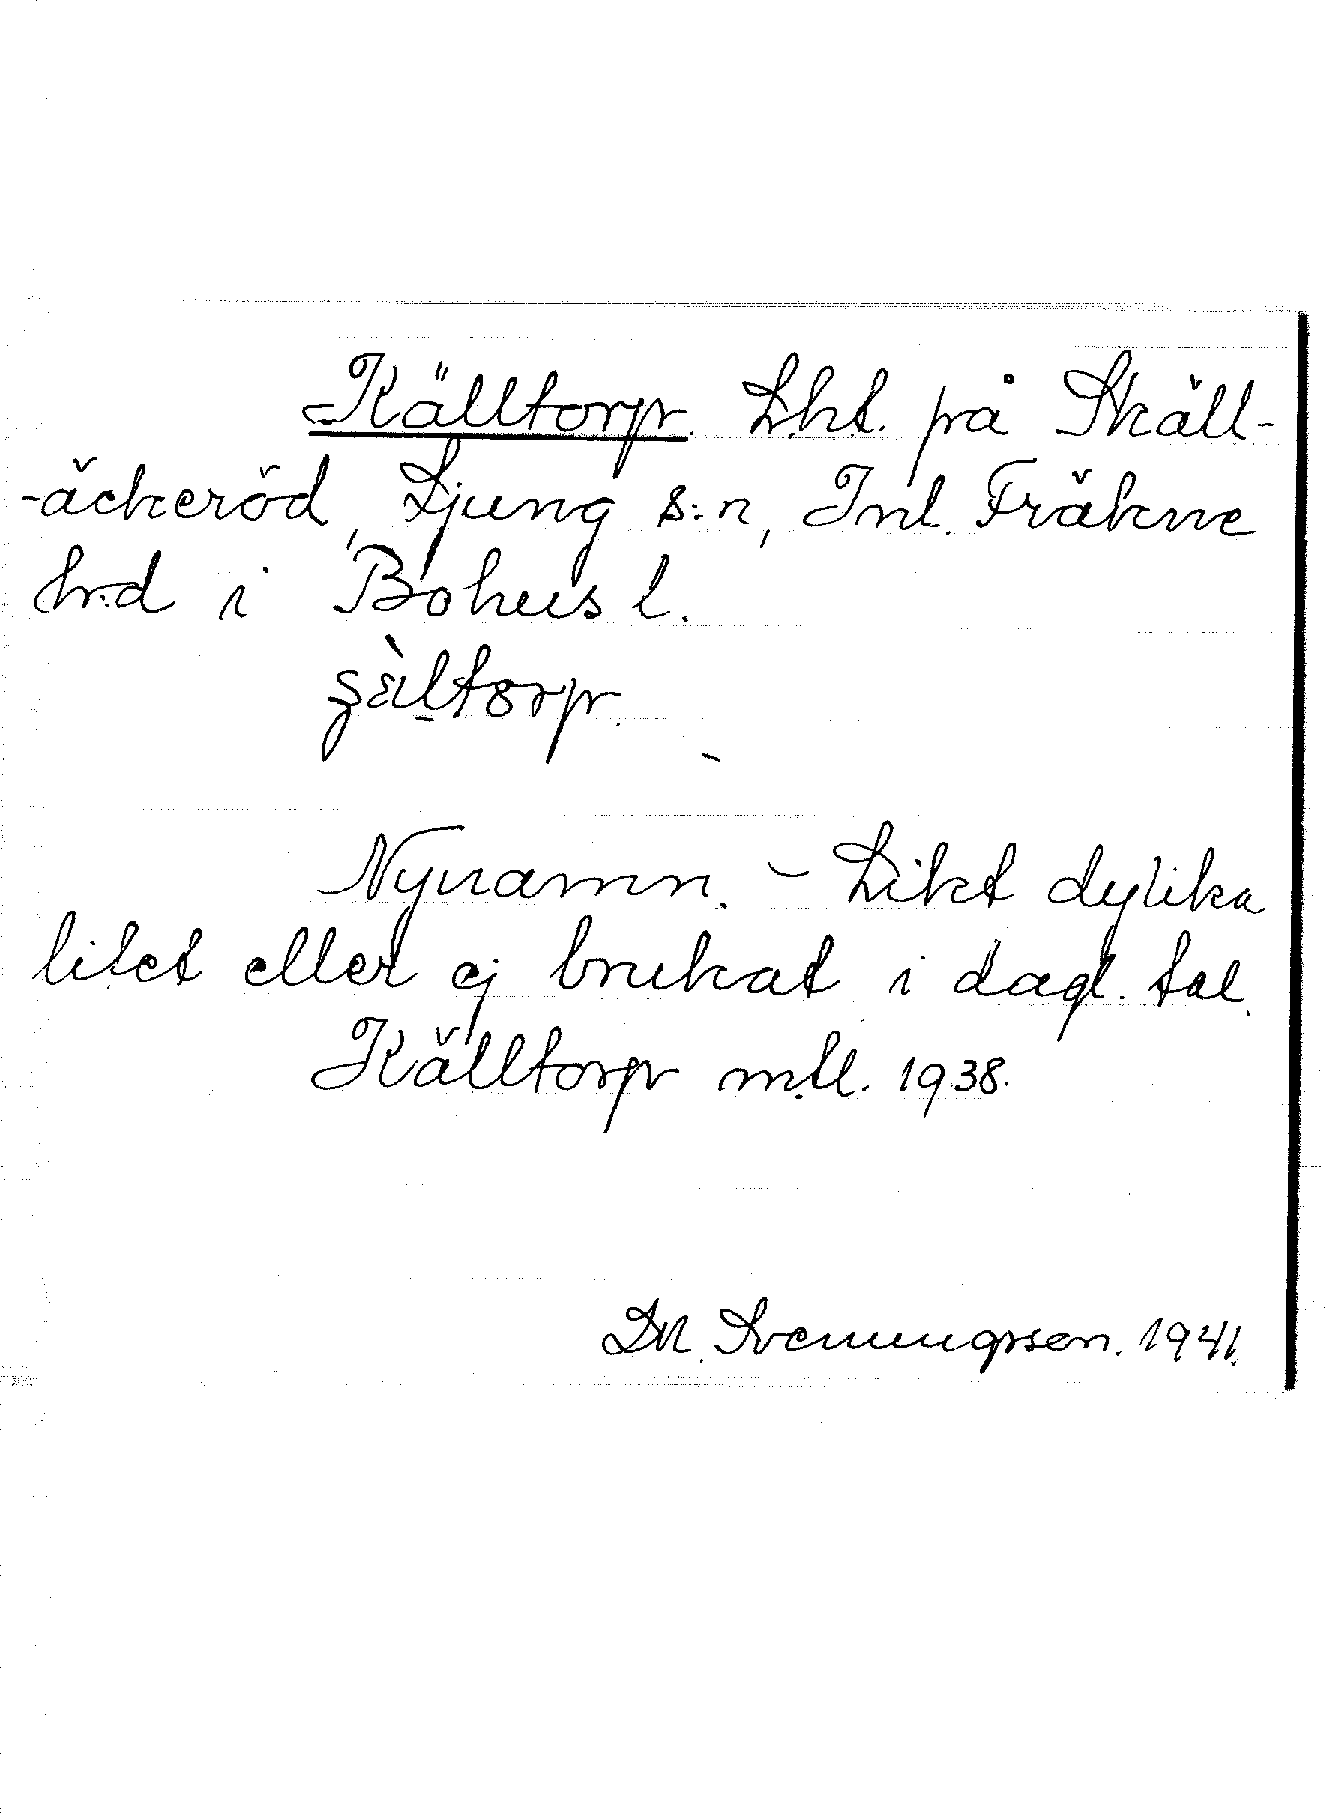 Källtorp. Lht. på Skäll-
-äckeröd, Ljung s:n, Inl. Fräkne
hrd i Bohusl.
Nynamn. - Likt dylika
litet eller ej brukat i dagl. tal.
Källtorp mtl. 1938.
1941.